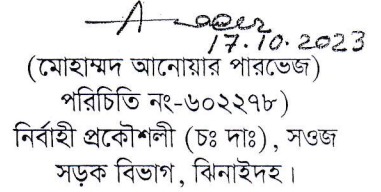 17.10.2023
(মোহাম্মদ আনোয়ার পারভেজ)
পরিচিতি নং-৬০২২৭৮)
নির্বাহী প্রকৌশলী (চঃ দাঃ), সওজ
সড়ক বিভাগ, ঝিনাইদহ।